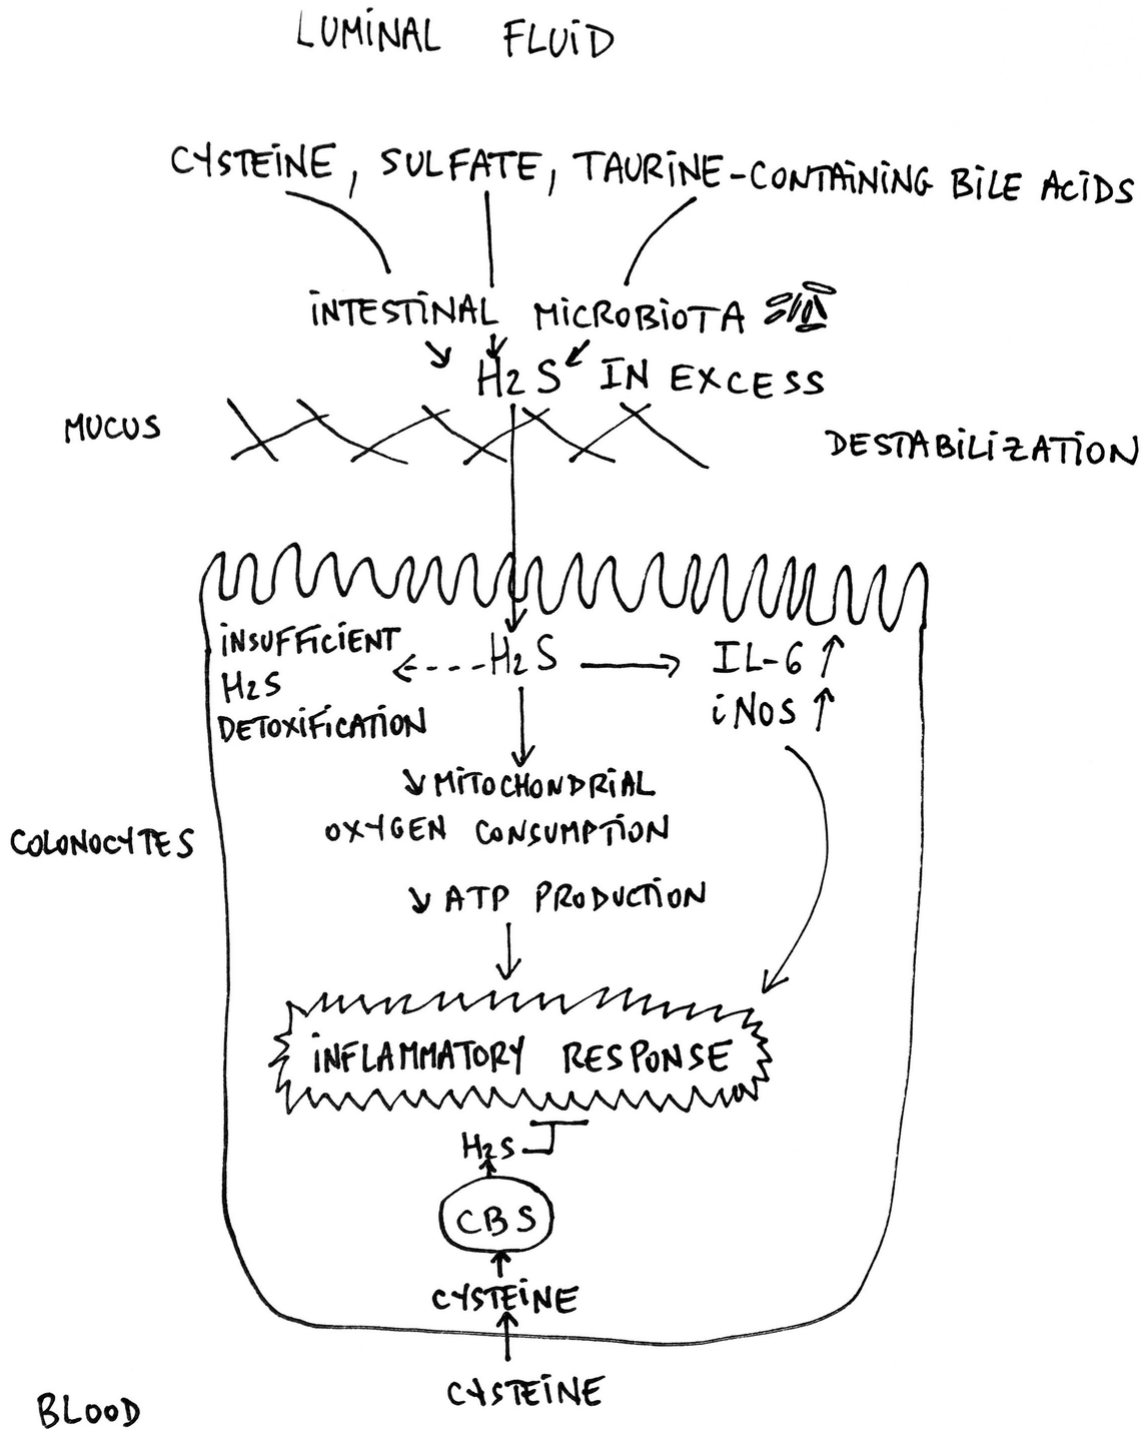 LUMiNAL FLUiD
CYSTEiNE, SULFATE, TAURiNE-CONTAiNiNG BiLE ACiDS
iNTESTiNAL MiCROBiOTA
H2S IN EXCESS
MUCUS
DESTABiLiZATiON
iNSUFFiCiENT
H2S
DETOXiFiCATiON
H2S
IL-6 ↑
iNOS ↑
↘ MiTOCHONDRiAL
OXYGEN CONSUMPTiON
COLONOCYTES
↘ ATP PRODUCTiON
iNFLAMMATORY RESPONSE
H2S
CBS
CYSTEiNE
CYSTEiNE
BLOOD